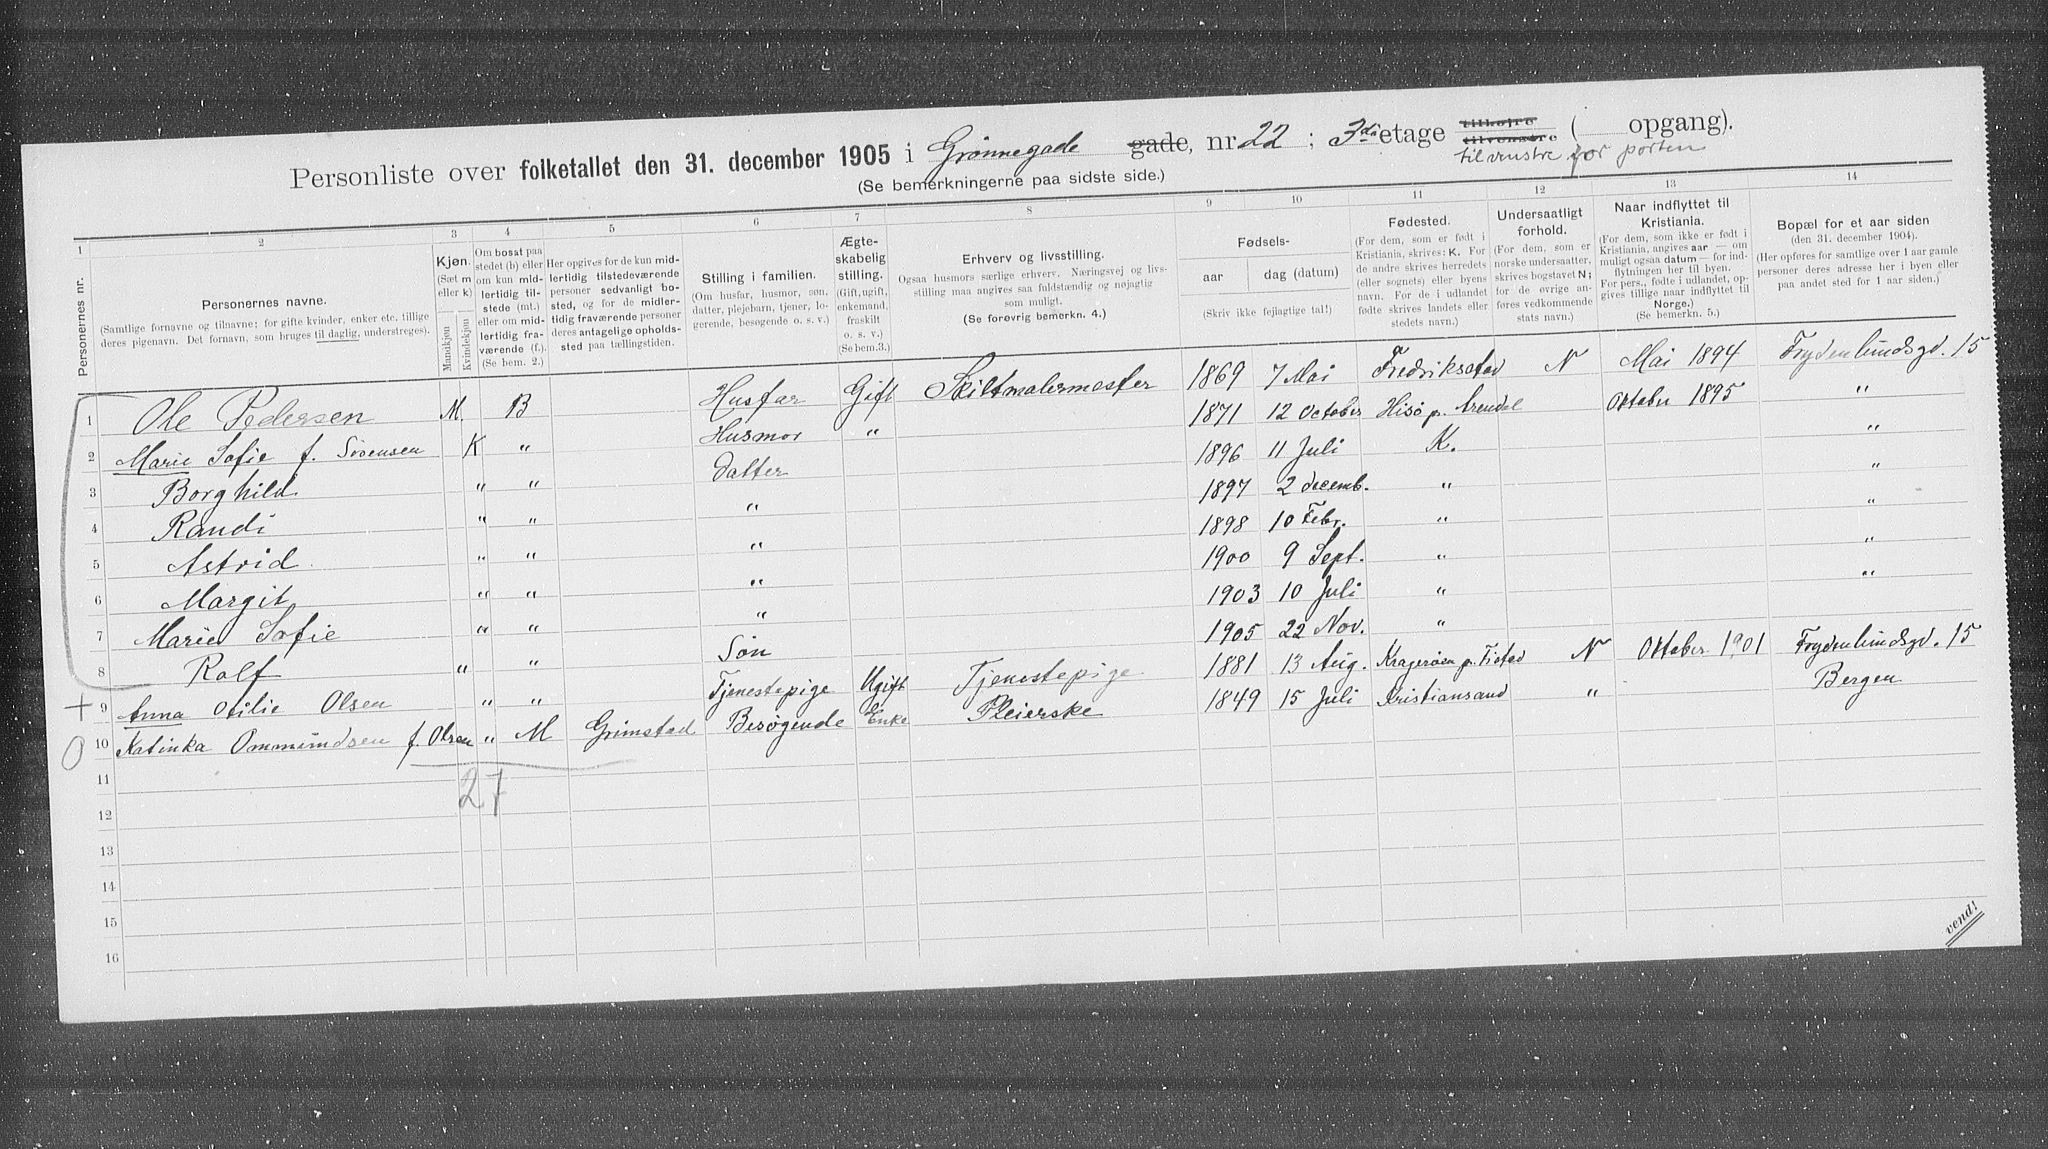 Personliste over folketallet den 31. december 1905 i Grønnegade gade, nr. 22 ; 3die etage tilhøjre tilvenstre ( opgang).
tilvenstre for porten
(Se bemerkningerne paa sidste side.)
1 2 3 4 5 6 7 8 9 10 11 12 13 14
Personernes nr.
Personernes navne.
(Samtlige fornavne og tilnavne; for gifte kvinder, enker etc. tillige deres pigenavn. Det fornavn, som bruges til daglig, understreges).
Kjøn. (Sæt m eller k)
Mandkjøn Kvindekjøn
Om bosat paa stedet (b) eller om kun midlertidig tilstede (mt.) eller om midlertidig fraværende (f.) (Se bem. 2.)
Her opgives for de kun midlertidig tilstedeværende personer sedvanligt bosted, og for de midlertidig fraværende personer deres antagelige opholdssted paa tællingstiden.
Stilling i familien.
(Om husfar, husmor, søn, datter, plejebarn, tjener, logerende, besøgende o. s. v.)
Ægteskabelig stilling. (Gift, ugift, enkemand, fraskilt o. s. v.) (Se bem.3.)
Erhverv og livsstilling.
Ogsaa husmors særlige erhverv. Næringsvej og livsstilling maa angives saa fuldstændig og nøjagtig som muligt.
(Se forøvrig bemerkn. 4.)
Fødsels-
aar dag (datum)
(Skriv ikke fejlagtige tal!)
Fødested.
(For dem, som er født i Kristiania, skrives: K. For de andre skrives herredets (eller sognets) eller byens navn. For de i udlandet fødte skrives landets eller stedets navn.)
Undersaatligt forhold.
(For dem, som er norske undersaatter, skrives bogstavet N; for de øvrige anføres vedkommende stats navn.)
Naar indflyttet til Kristiania.
(For dem, som ikke er født i Kristiania, angives aar — om muligt ogsaa datum — for indflytningen her til byen. For pers., fødte i udlandet, opgives tillige naar indflyttet til Norge.)
(Se bemerkn. 5.)
Bopæl for et aar siden
(den 31. december 1904).
(Her opføres for samtlige over 1 aar gamle personer deres adresse her i byen eller paa andet sted for 1 aar siden.)
1 Ole Pedersen M. B Husfar Gift Skiltmalermester 1869 7 Mai Fredriksstad N Mai 1894 Frydenlundsgd. 15
2 Marie Sofie f. Sørensen K " Husmor " 1871 12 October Hisø p. Arendal Oktober 1895 "
3 Borghild " " Datter 1896 11 Juli K. "
4 Randi " " " 1897 2 decemb. " "
5 Astrid " " " 1898 10 Febr. " "
6 Margit " " " 1900 9 Sept. " "
7 Marie Sofie " " " 1903 10 Juli " "
8 Rolf " " Søn 1905 22 Nov. "
+ 9 Anna Otilie Olsen " " Tjenestepige Ugift Tjenestepige 1881 13 Aug. Kragerøen p. F.stad N Oktober 1901 Frydenlundsgd. 15
0 10 Katinka Ommundsen f. Olsen " M Grimstad Besøgende Enke Pleierske 1849 15 Juli Kristiansand " Bergen
11
27
12
13
14
15
16
vend!